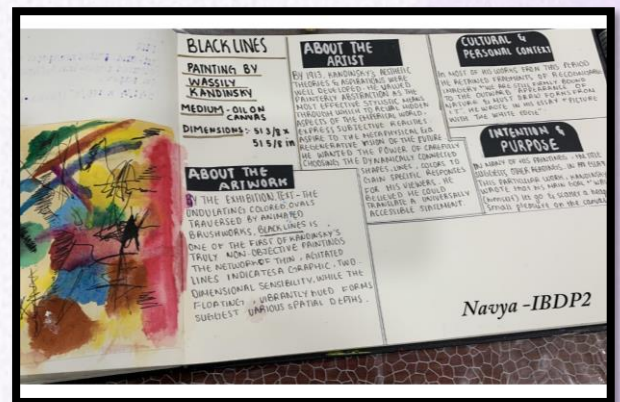 BLACK LINES
PAINTING BY
WASSILY
KANDINSKY
MEDIUM - OIL ON
CANVAS
DIMENSIONS :- 51 3/8 x
51 5/8 in
ABOUT THE
ARTWORK
BY THE EXHIBITION, TEXT - THE
UNDULATING COLORED OVALS
TRAVERSED BY ANIMATED
BRUSHWORKS, BLACK LINES IS
ONE OF THE FIRST OF KANDINSKY'S
TRULY NON-OBJECTIVE PAINTINGS
THE NETWORK OF THIN, AGITATED
LINES INDICATES A GRAPHIC, TWO
DIMENSIONAL SENSIBILITY, WHILE THE
FLOATING, VIBRANTLY HUED FORMS
SUGGEST VARIOUS SPATIAL DEPTHS.
ABOUT THE
ARTIST
BY 1913, KANDINSKY'S AESTHETIC
THEORIES & ASPIRATIONS WERE
WELL DEVELOPED. HE VALUED
PAINTERLY ABSTRACTION AS THE
MOST EFFECTIVE STYLISTIC MEANS
THROUGH WHICH TO REVEAL HIDDEN
ASPECTS OF THE EMPIRICAL WORLD,
EXPRESS SUBJECTIVE REALITIES
ASPIRE TO THE METAPHYSICAL &
REGENERATIVE VISION OF THE FUTURE
HE WANTED THE POWER OF CAREFULLY
CHOOSING THE DYNAMICALLY CONNECTED
SHAPES, LINES & COLORS TO
SPECIFIC RESPONSES
FOR HIS VIEWERS, HE
BELIEVED HE COULD
TRANSLATE A UNIVERSALLY
ACCESSIBLE STATEMENT.
CULTURAL &
PERSONAL CONTEXT
IN MOST OF HIS WORKS FROM THIS PERIOD
HE RETAINED FRAGMENTS OF RECOGNIZABLE
IMAGERY "WE ARE STILL FIRMLY BOUND
TO THE OUTWARD APPEARANCE OF
NATURE & MUST DRAW FORMS FROM
IT". HE WROTE IN HIS ESSAY "PICTURE
WITH THE WHITE EDGE"
INTENTION &
PURPOSE
IN MANY OF HIS PAINTINGS, THE TITLE
SUGGESTS OTHER READINGS, IN AN ESSAY
THIS PARTICULAR WORK, KANDINSKY
WROTE THAT HIS MAIN
(himself) let go & scatter a
small pleasures on the canvas
Navya -IBDP2